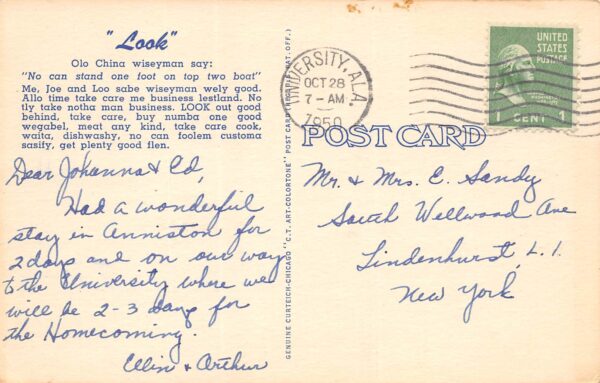 "Look"
Olo China wiseyman say:
"No can stand one foot on top two boat"
Me, Joe and Loo sabe wiseyman wely good.
Allo time take care me business lestland. No
tly take notha man business. LOOK out good
behind, take care, buy numba one good
wegabel, meat any kind, take care cook,
waita, dishwashy, no can foolem customa
sasify, get plenty good flen.
Dear Johanna & Ed,
Had a wonderful
stay in Anniston for
2 days and on our way
to the University where we
will be 2-3 days for
the Homecoming.
Ellin & Arthur
GENUINE CURTEICH-CHICAGO "C.T. ART-COLORTONE" POST CARD (REG. U.S. PAT. OFF.)
UNIVERSITY, ALA.
OCT 28
7-AM
1950
UNITED
STATES
POSTAGE
1 CENT 1
POST CARD
Mr. & Mrs. E. Sandy
South Wellwood Ave
Lindenhurst, L.I.
New York